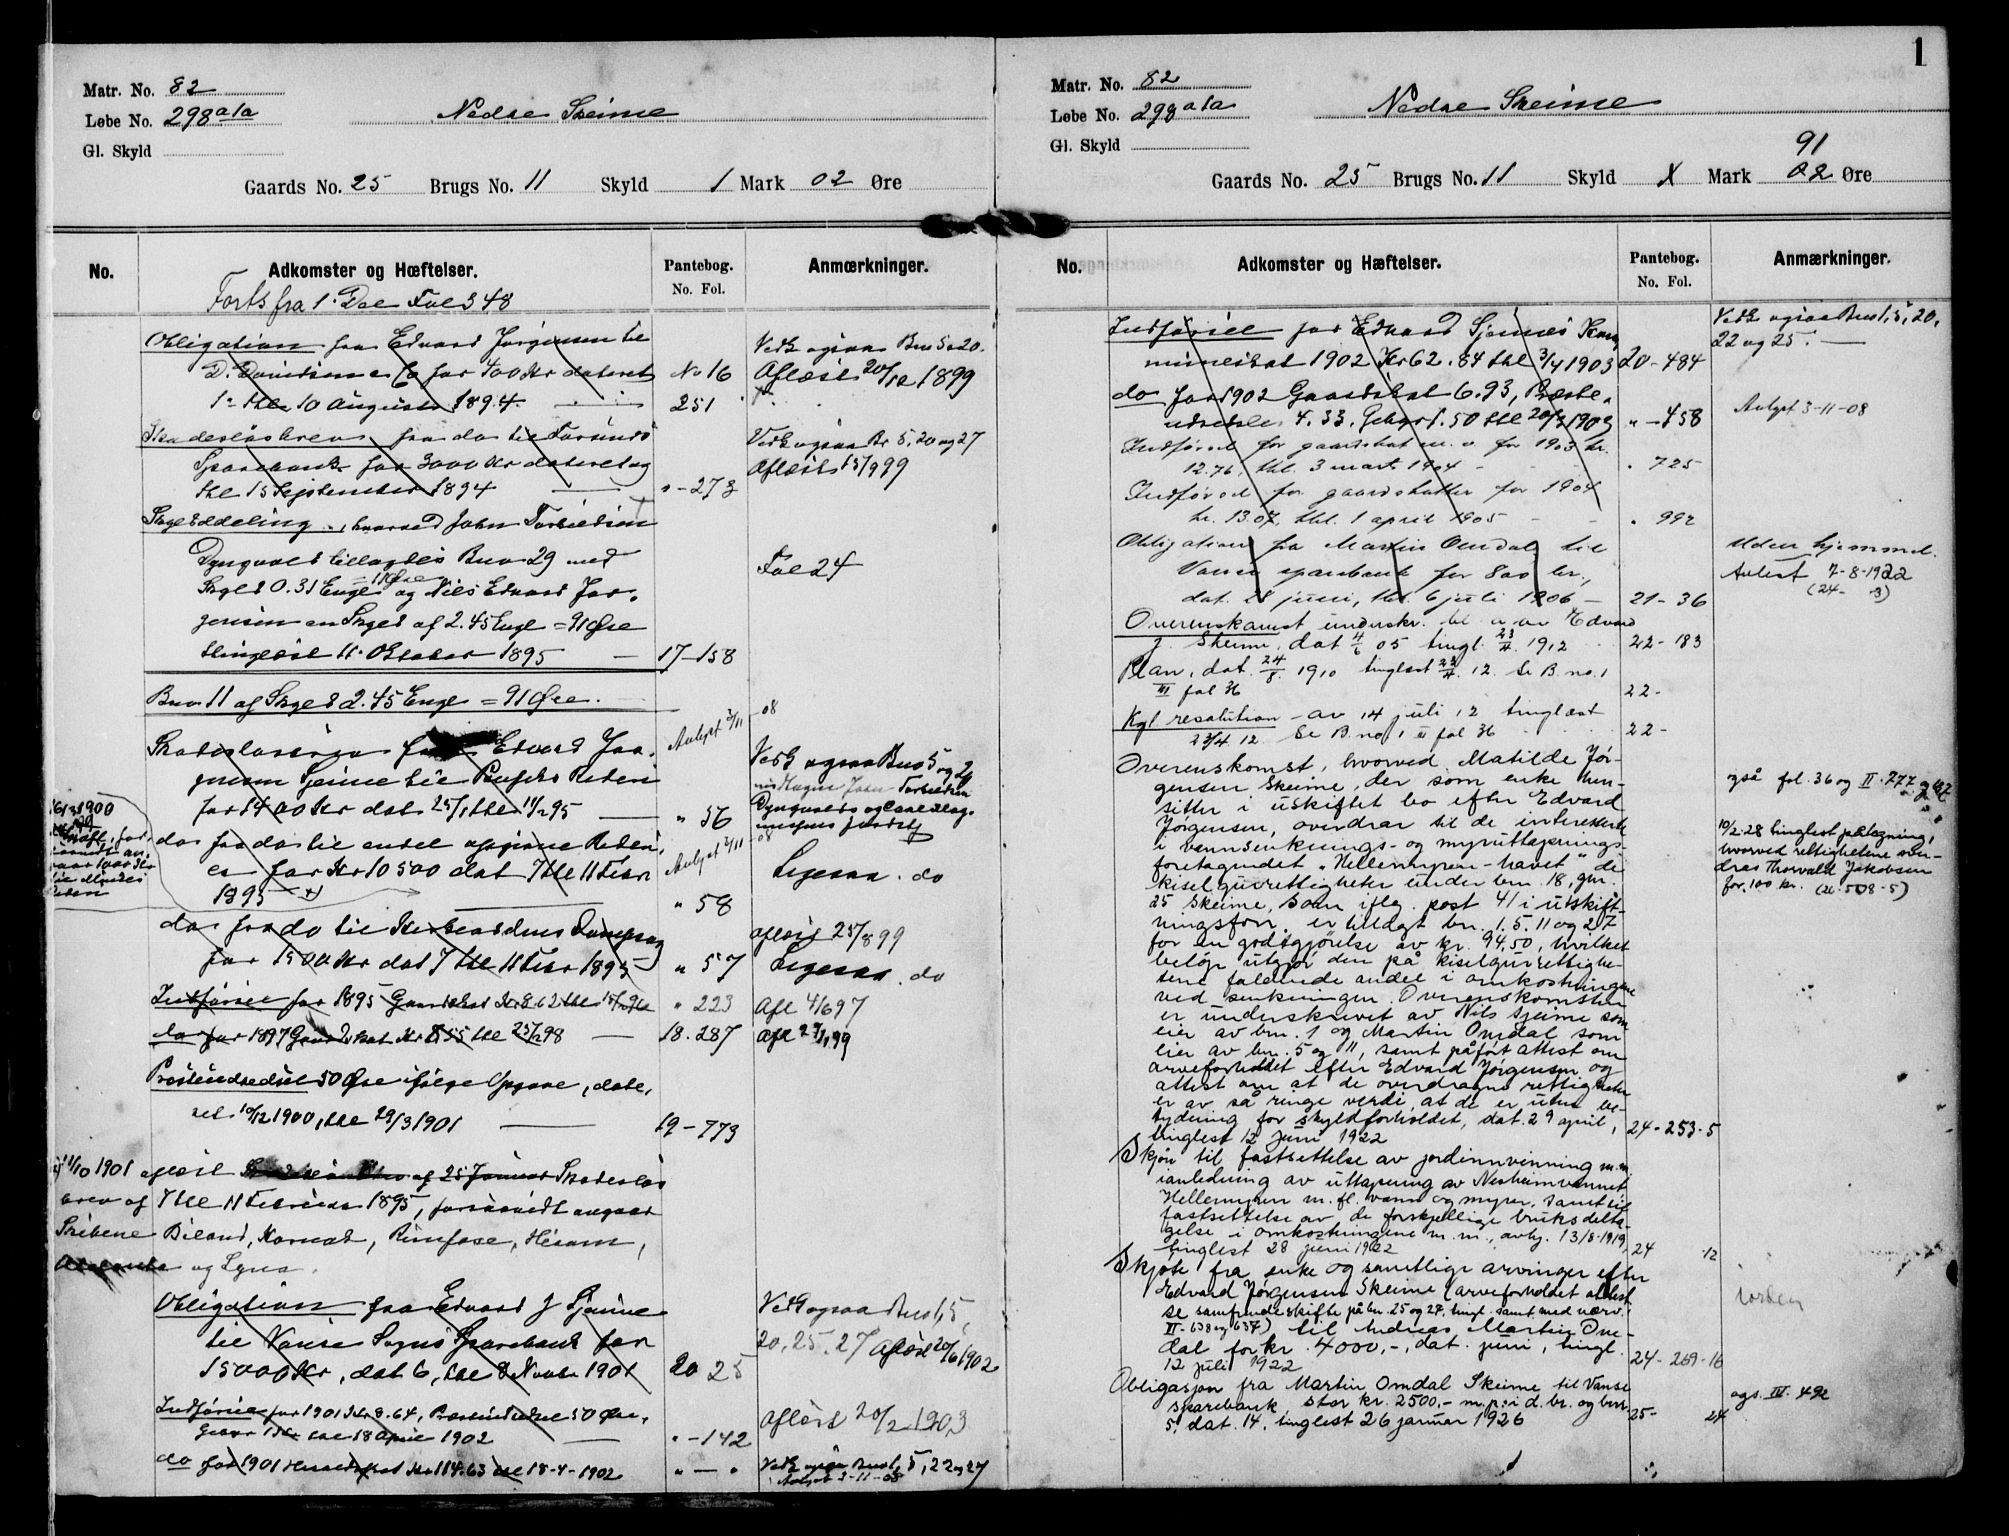 Matr. No. 82
Løbe No. 298 a1a
Nedre Skeime
Gl. Skyld
Gaards No. 25 Brugs No. 11 Skyld 1 Mark 02 Øre
No. Adkomster og Hæftelser. Pantebog. No. Fol. Anmærkninger.
Forts fra 1. Del Fol 348
Obligation fra Edvard Jørgensen til
D. Davidsen & Co for 400 Kr dateret No 16
1. thl 10 August 1894. 251
Vedk ogsaa Bno 5 20.
Afløst 20/12 1899
Skadesløsbrev fra do til Farsunds
Sparebank for 3000 Kr dateret og
thl 15 September 1894 " - 273
Vedk ogsaa Br 5, 20 og 27
Afløst 15/9 99
Skylddeling, hvorved John Torkildsen
Dyngvold tillagdes Bno 29 med
Skyld 0.31 Engl = 11 Øre og Niels Edvard Jør-
gensen en Skyld af 2.45 Engl = 91 Øre
thinglæst 11. Oktober 1895 17-158
Fol 24
Bno 11 af Skyld 2.45 Engl = 91 Øre.
Skadesløsbrev fra Edvard Jør-
gensen Sjeime til
for 1400 Kr dat 25/1 thl 11/2 95 " 56
Avlyst 3/11 08
Vedk ogsaa Bno 5 og 27
Dyngvolds og
do fra do til andel
for Kr 10500 dat 7 thl 11 Febr
1895 " 58
Avlyst 3/11 08
Ligesaa. do
6/3 1900
do fra do til
for 1500 Kr dat 7 thl 11 Febr 1895 " 57
afløst 25/8 99
Ligesaa. do
Indførsel for 1895 Gaardskat Kr 8.62 thl " 223 Afl 4/6 97
do for 1897 Gaardskat Kr 8.55 thl 25/2 98 18. 287 Afl 27/1 99
Presteindredsel 50 Øre ifølge Opgave, date-
ret 10/12 1900, thl 29/3 1901 19-773
11/10 1901 afløst af 25 Januar Skadesløs-
brev af 7 thl 11 Februar 1895, forsaavidt angaar
Skibene Biland, Rimfaxe,
og Lyna.
Obligation fra Edvard J Sjeime
til Vanse Sogns Sparebank for
15000 Kr, dat 6, thl 8 Novbr 1901 20 25
Vedk ogsaa Bno 1, 5,
20, 25. 27 Afløst 20/6 1902
Indførsel for 1901 Kr 8.64, 50 Øre,
Gebyr thl 18 April 1902 " - 142
Afløst 20/2 1903
do for 1901 Kr 114.63 thl 18-4-1902 " - "
Vedk ogsaa Bno 1, 5, 22 og 27
Avlyst 3-11-08
1
Matr. No. 82
Løbe No. 298 a1a
Nedre Skeime
Gl. Skyld
91
Gaards No. 25 Brugs No. 11 Skyld 1 Mark 02 Øre
No. Adkomster og Hæftelser. Pantebog. No. Fol. Anmærkninger.
Indførsel for Edvard Sjeimes Kom-
muneskat 1902 Kr 62.84 thl 3/4 1903 20-484
Vedk ogsaa Bno 1, 5, 20,
22 og 25.
do for 1902 Gaardskat 6.93, Præste-
udredsler 4.33, Gebyr 1.50 thl 20/3 1903 " - 458
Avlyst 3-11-08
Indførsel for gaardskat m. v. for 1903 kr.
12.76, thl. 3 marts 1904 " 725
Indførsel for gaardskatter for 1904
kr. 13.07, thl. 1 april 1905 " 992
Obligation fra Martin Omdal til
Vanse sparebank for 800 kr.,
dat. 28 juni, thl. 6 juli 1906 21-36
Uden hjemmel.
Avlest 7-8-1922
(24- 3)
Overenskomst underskr. bl. a. av Edvard
J. Skeime, dat 4/6 05 tingl. 23/4. 1912 22-183
Plan, dat. 24/8 1910 tinglæst 23/4. 12. Se B. no. 1
III fol 36 22-
Kgl. resolution av 14 juli 12 tinglæst
23/4 12. Se B. no. 1 fol 36 22-
Overenskomst, hvorved Matilde Jør-
gensen Skeime, der som enke hen-
sitter i uskiftet bo efter Edvard
Jørgensen, overdrar til de interesserte
i vannsenknings- og myruttapnings-
foretagendet "Hellemyren-havet" de
kiselgurrettigheter under bno. 18, gnr.
25 Skeime, som iflg. post 41 i utskift-
ningsforr. er tillagt bn. 1. 5. 11 og 27
for en godtgjørelse av kr. 94,50, hvilket
beløp utgjør den på kiselgurrettighe-
tene faldende andel i omkostningene
ved senkningen. Overenskomsten
er underskrevet av Nils Sjeime som
eier av bn. 1 og Martin Omdal som
eier av bn. 5 og 11, samt påført attest om
arveforholdet efter Edvard Jørgensen og
attest om at de overdragne rettigheter
er av så ringe verdi at de er uten be-
tydning for skyldforholdet, dat. 29 april,
tinglest 12 juni 1922 24-253-5
også fol. 36 og II. 277
10/2.28 tinglest påtegning,
hvorved rettighetene over-
dras Thorvald Jakobsen
for 100 kr. (26. 508-5)
Skjøn til fastsettelse av jordinnvinning m.m.
i anledning av uttapning av Nesheimvannet
Hellemyren m. fl. vann og myrer, samt til
fastsettelse av de forskjellige bruks delta-
gelse i omkostningene m. m., avhj. 13/8-1919,
tinglest 28 juni 1922 24 12
Skjøte fra enke og samtlige arvinger efter
Edvard Jørgensen Skeime (arveforholdet attest.
se samfrendeskifte på bn. 25 og 27, tingl. samt. med nærv.
II-638 og 637) til Andreas Martin Om-
dal for kr. 4000,-, dat. juni, tingl.
12 juli 1922 24-269-16
Obligasjon fra Martin Omdal Skeime til Vanse
sparebank, stor kr. 2500,- m. p. i d. br. og bn.
5, dat. 14, tinglest 26 januar 1926 25- 24
ogs. IV. 492